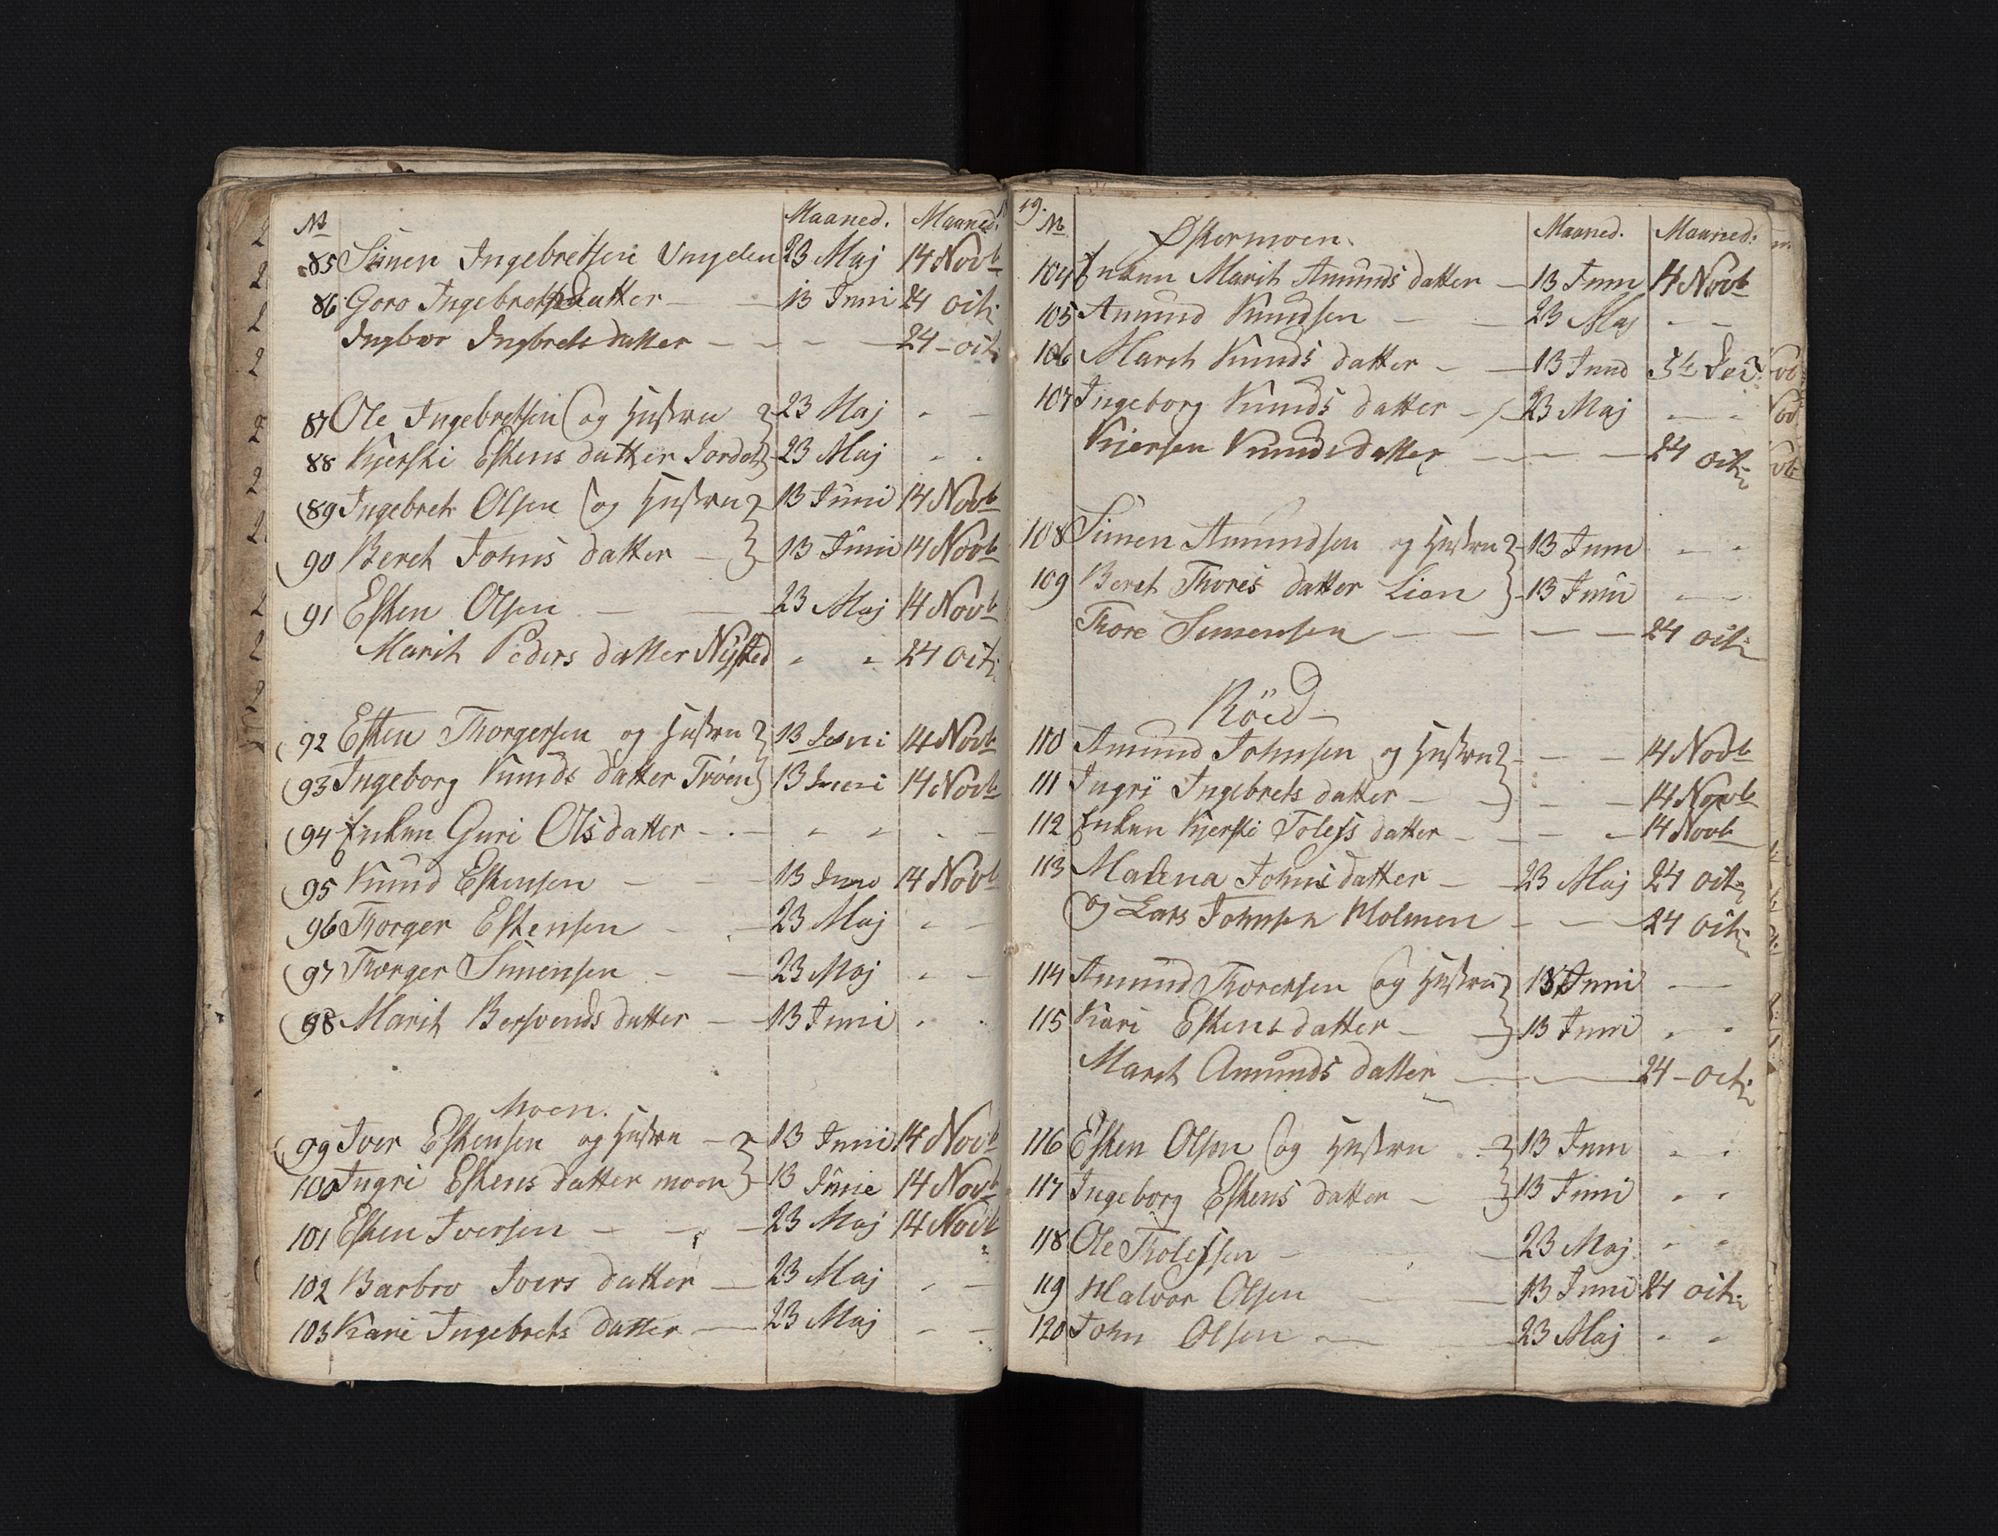 No Maaned. Maaned.
85 Simen Ingebretsen Ungelen 23 Maj 14 Novb
86 Goro Ingebretsdatter - - 13 Juni 24 oct:
Ingbor Ingbretsdatter - - - - 24 - oct:
87 Ole Ingebretsen og Hustru } 23 Maj - -
88 Kjersti Estens datter Jordet } 23 Maj - -
89 Ingebret Olsen og Hustru } 13 Juni 14 Novb
90 Beret Johns datter - } 13 Juni 14 Novb
91 Esten Olsen - - 23 Maj 14 Novb
Marit Peders datter Nysted - - 24 oct:
92 Esten Thorgersen og Hustru } 13 Juni 14 Novb
93 Ingeborg Knuds datter Trøen } 13 Juni 14 Novb
94 Enken Guri Olsdatter - - - - - -
95 Knud Estensen - - 13 Juni 14 Novb
96 Thorger Estensen - - 23 Maj - -
97 Thorger Simensen - - 23 Maj - -
98 Marit Bersvends datter - - 13 Juni - -
Moen.
99 Iver Estensen og Hustru - } 13 Juni 14 Novb
100 Ingri Estens datter moen } 13 Junie 14 Novb
101 Esten Iversen - - - 23 Maj 14 Novb
102 Barbro Ivers datter - 23 Maj - -
103 Kari Ingebrets datter - 23 Maj - -
19.
No Maaned. Maaned.
Østermoen.
104 Enken Marit Amunds datter - 13 Juni 14 Novb
105 Amund Knudsen - - 23 Maj - -
106 Marit Knuds datter - - 13 Juni
107 Ingeborg Knuds datter - - 23 Maj - -
Kjersen Knudsdatter - - - 24 oct:
108 Simen Amundsen og Hustru } 13 Juni - -
109 Beret Thores datter Lien } 13 Juni - -
Thore Simensen - - - - 24 oct:
Röed -
110 Amund Johnsen og Hustru } - - 14 Novb
111 Ingri Ingebrets datter - - } - - 14 Novb
112 Enken Kjersti Tolefs datter - - - 14 Novb
113 Malena Johns datter - - 23 Maj 24 oct:
og Lars Johnsen Holmen - - - 24 oct:
114 Amund Thoresen og Hustru } 13 Juni - -
115 Kari Estens datter - - } 13 Juni - -
Marit Amunds datter - - 24 - oct:
116 Esten Olsen og Hustru } 13 Juni - -
117 Ingeborg Estens datter - } 13 Juni - -
118 Ole Tholefsen - - 23 Maj - -
119 Halvor Olsen - - 13 Juni 24 oct:
120 John Olsen - - 23 Maj - -